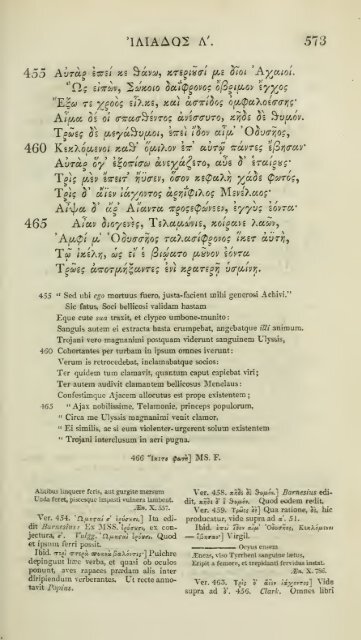 ἸΛΙΑΔΟΣ Λʹ. 573
455 Αὐτὰρ ἐπεί κε θάνω, κτεριοῦσί με δῖοι Ἀχαιοί.
Ὣς εἰπὼν, Σώκοιο δαΐφρονος ὄβριμον ἔγχος
Ἔξω τε χροὸς εἷλκε, καὶ ἀσπίδος ὀμφαλοέσσης·
Αἷμα δέ οἱ σπασθέντος ἀνέσσυτο, κῆδε δὲ θυμόν.
Τρῶες δὲ μεγάθυμοι, ἐπεὶ ἴδον αἷμ' Ὀδυσῆος,
460 Κεκλόμενοι καθ' ὅμιλον ἐπ' αὐτῷ πάντες ἔβησαν·
Αὐτὰρ ὅγ' ἐξοπίσω ἀνεχάζετο, αὖε δ' ἑταίρους·
Τρὶς μὲν ἔπειτ' ἤϋσεν, ὅσον κεφαλὴ χάδε φωτός,
Τρὶς δ' ἄϊεν ἰάχοντος ἀρηΐφιλος Μενέλαος·
Αἶψα δ' ἄρ' Αἴαντα προσεφώνεεν, ἐγγὺς ἐόντα·
465 Αἶαν διογενὲς, Τελαμώνιε, κοίρανε λαῶν,
Ἀμφί μ' Ὀδυσσῆος ταλασίφρονος ἵκετ' ἀϋτὴ,
Τῷ ἰκέλη, ὡς εἴ ἑ βιῴατο μοῦνον ἐόντα
Τρῶες ἀποτμήξαντες ἐνὶ κρατερῇ ὑσμίνῃ.
455 " Sed ubi ego mortuus fuero, justa-facient mihi generosi Achivi."
Sic fatus, Soci bellicosi validam hastam
Eque cute sua traxit, et clypeo umbone-munito:
Sanguis autem ei extracta hasta erumpebat, angebatque illi animum.
Trojani vero magnanimi postquam viderunt sanguinem Ulyssis,
460 Cohortantes per turbam in ipsum omnes iverunt:
Verum is retrocedebat, inclamabatque socios:
Ter quidem tum clamavit, quantum caput capiebat viri;
Ter autem audivit clamantem bellicosus Menelaus:
Confestimque Ajacem allocutus est prope existentem;
465 " Ajax nobilissime, Telamonie, princeps populorum,
" Circa me Ulyssis magnanimi venit clamor,
" Ei similis, ac si eum violenter-urgerent solum existentem
" Trojani interclusum in acri pugna.
466 Ἵκετο φωνὴ] MS. F.
Alitibus linquere feris, aut gurgite mersum
Unda feret, piscesque impasti vulnera lambent.
Æn. X. 557.
Ver. 454. edi-
dit Barnesius: Ex MSS. ex con-
jectura, Vulgg. Quod
et ipsum ferri possit.
Ibid. Pulchre
depingunt hæc verba, et quasi ob oculos
ponunt, aves rapaces prædam alis inter
diripiendum verberantes. Ut recte anno-
tavit Popius.
Ver. 458. κῆδε δὲ θυμόν.] Barnesius edi-
dit, Quod eodem redit.
Ver. 459. Τρῶες δὲ] Qua ratione, δὲ, hic
producatur, vide supra ad αʹ. 51.
Ibid. ἐπεὶ ἴδον αἷμ' Ὀδυσῆος, Κεκλόμενοι
— ἔβησαν·] Virgil.
——— Ocyus ensem
Æneas, viso Tyrrheni sanguine lætus,
Eripit a femore, et trepidanti fervidus instat.
Æn. X. 786.
Ver. 463. Τρὶς δ' ἄϊεν ἰάχοντος] Vide
supra ad 456. Clark. Omnes libri